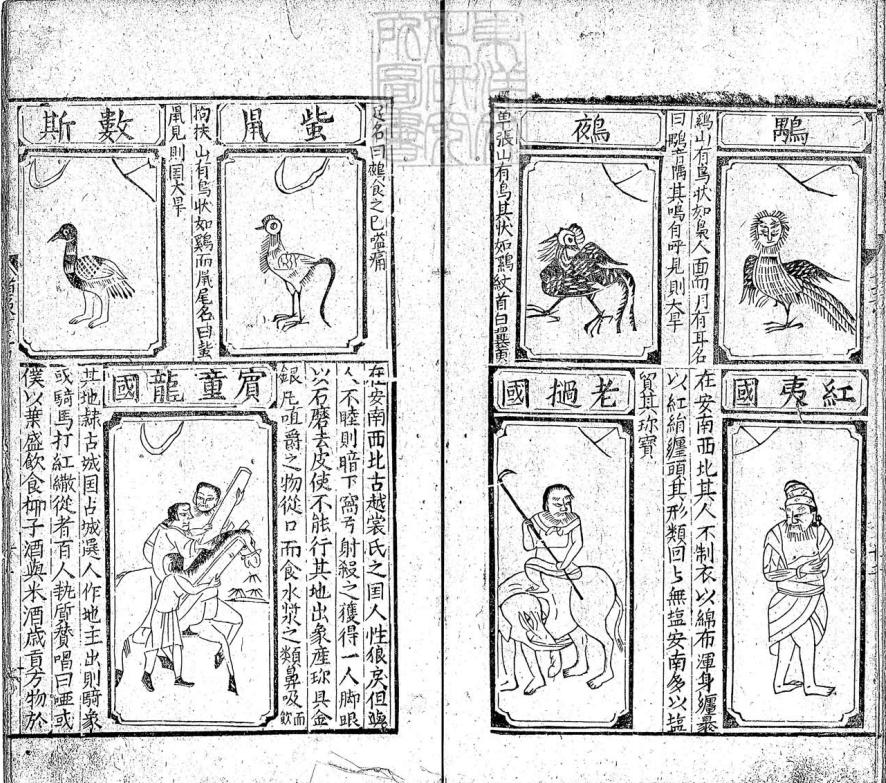 鷄山有鳥狀如梟人面而月有耳名
曰 音隅其鳴自呼見則大旱
鵺
張山有鳥其狀如鷄紋首白翼黄
足名曰鵺食之已嗌痛
蚩鼠
拘扶山有鳥狀如鷄而鼠尾名曰蚩
鼠見則国大旱
數斯
紅夷國
在安南西北其人不制衣以綿布渾身纏裹
以紅絹纏頭其形類回〻無塩安南多以塩
貿其珎寶
老撾國
在安南西北古越裳氏之国人性狼戾但與
人不睦則暗下窩弓射殺之獲得一人脚跟
以石磨去皮使不能行其地出象産珎具金
銀凡啗爵之物從口而食水漿之類鼻吸而飲
賓童龍國
其地隷古城国占城選人作地主出則騎象
或騎馬打紅繖從者百人執盾賛唱曰唖或
僕以葉盛飲食椰子酒與米酒歳貢方物於